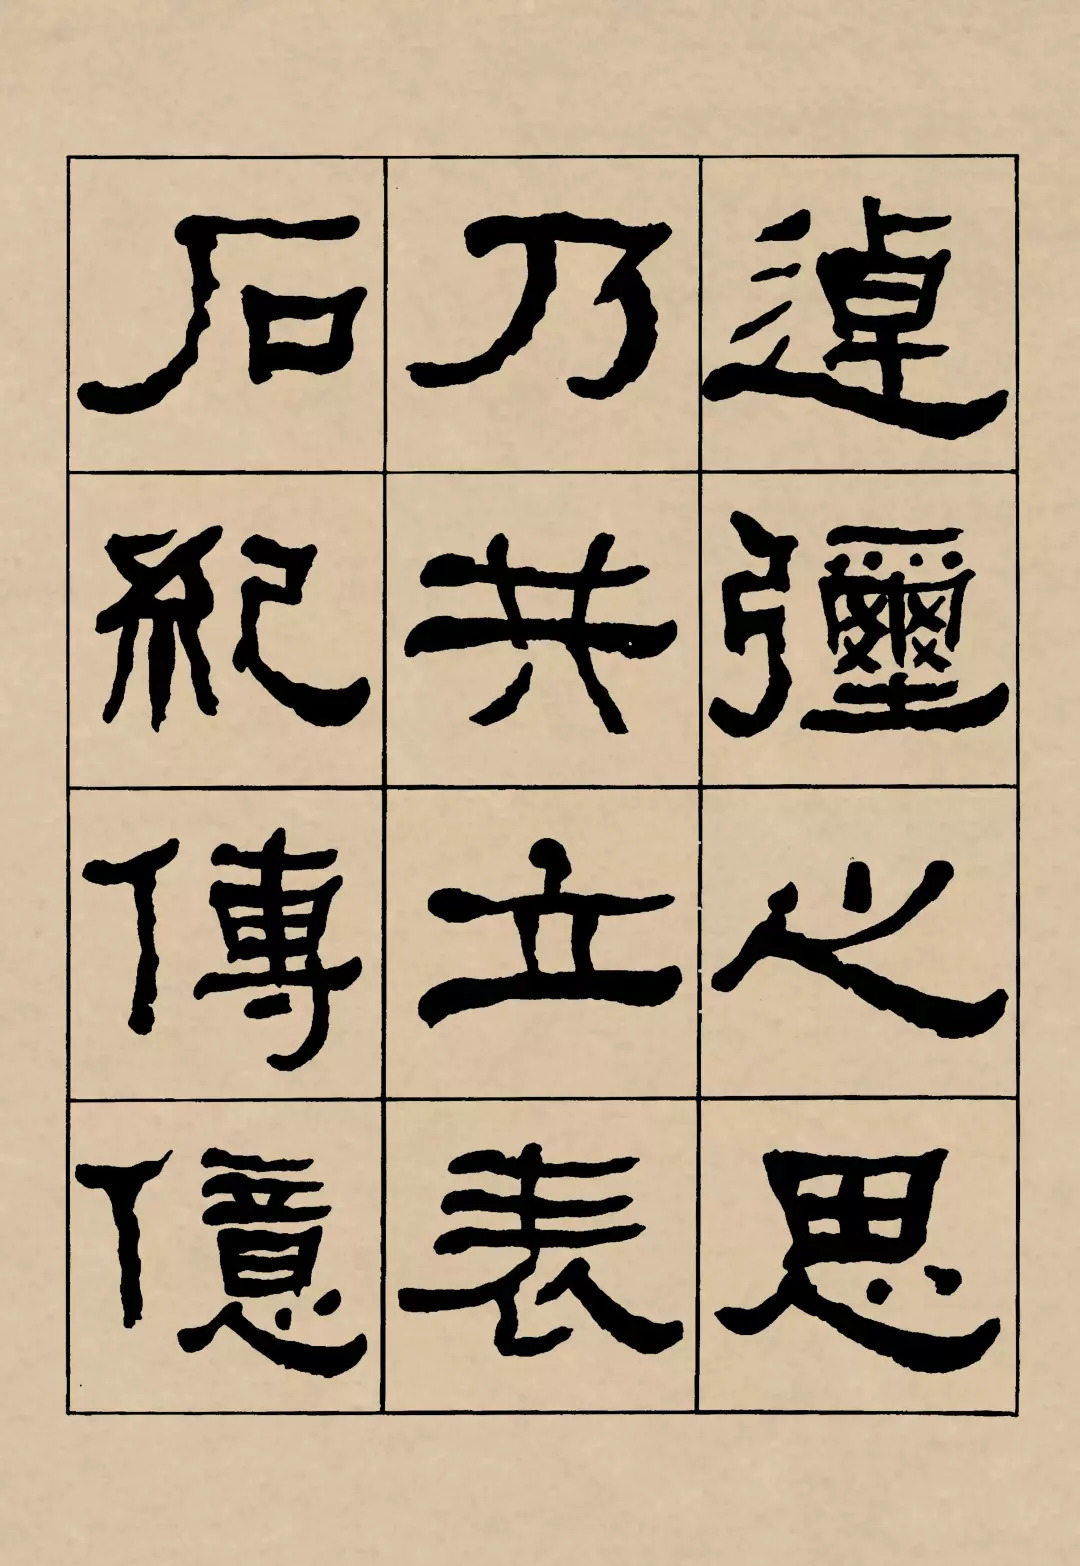 逴彌之思
乃共立表
石紀傳億